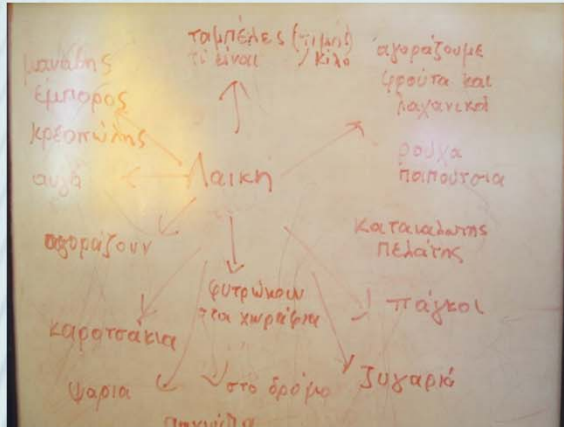 ταμπέλες (τιμή)
τι είναι / κιλο
αγοράζουμε
φρούτα και
λαχανικά
μανάβης
έμπορος
κρεοπώλης
αυγά
Λαική
ρούχα
παπούτσια
αγοράζουν
καταναλωτης
πελάτης
φυτρώνουν
στα χωράφια
πάγκοι
καροτσάκια
ζυγαριά
ψαρια
στο δρόμο